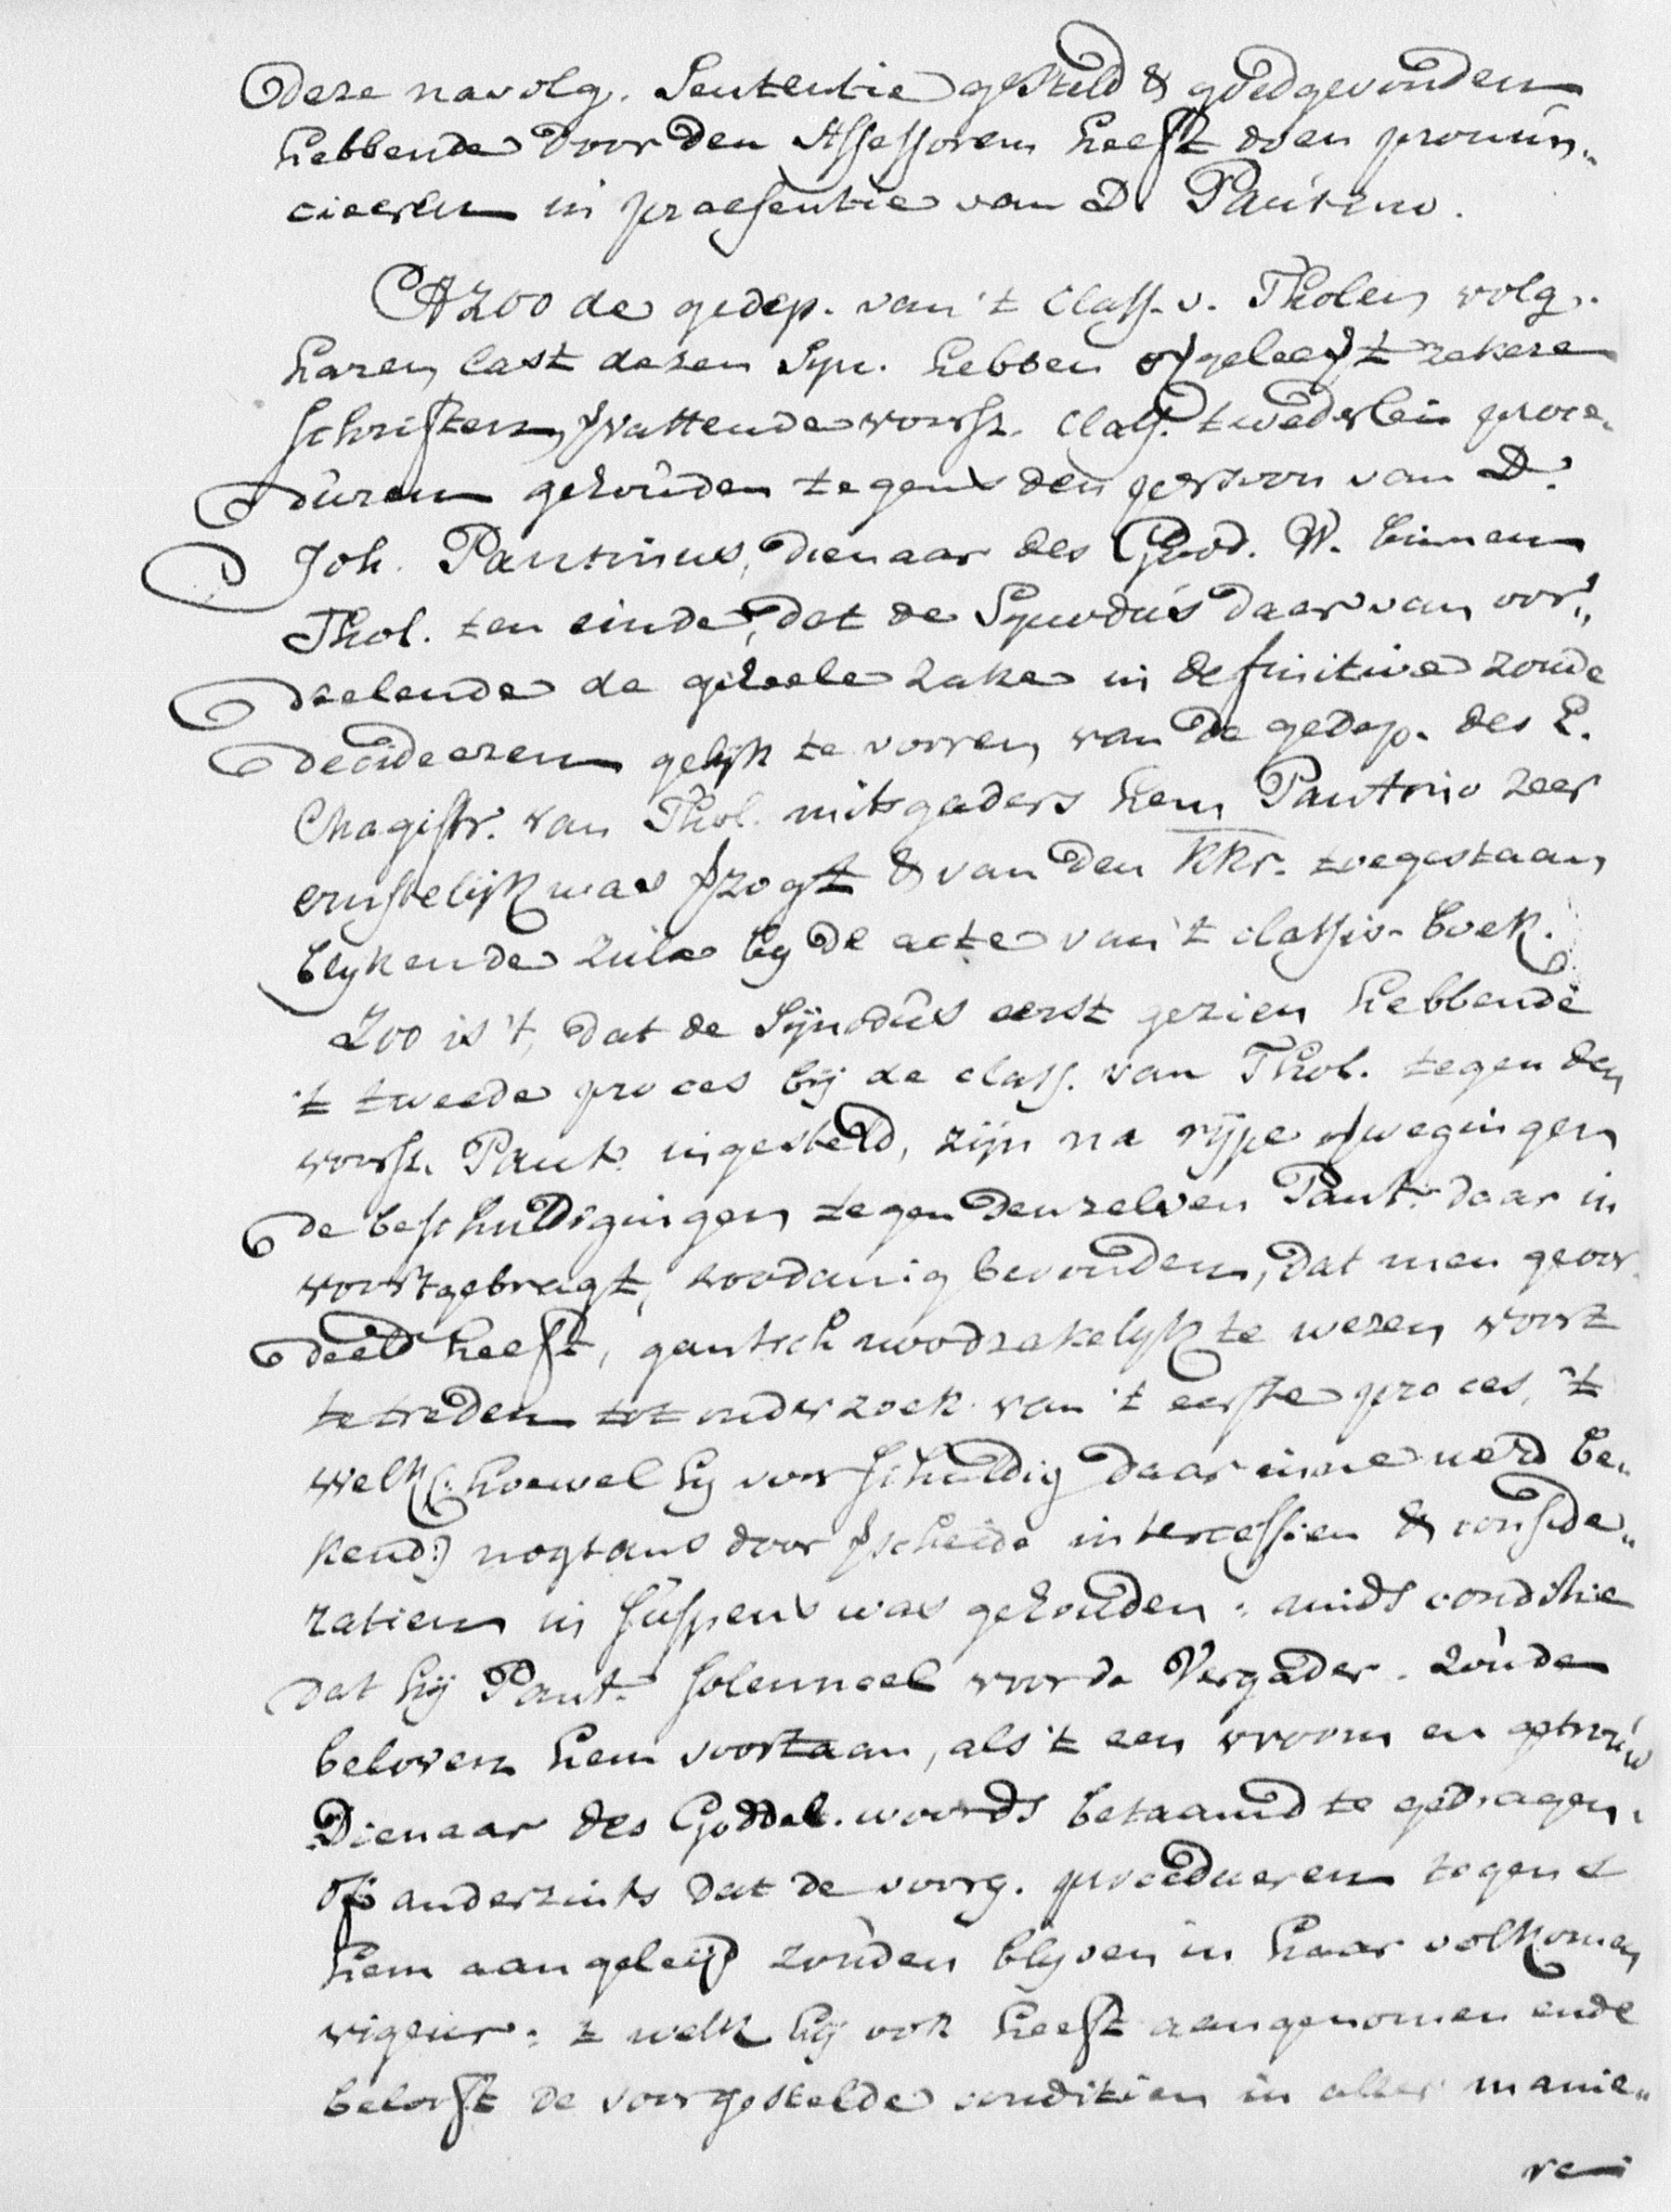 deze navolg. Sententie gesteld & goedgevonden
hebbende door den Assessorem heeft doen pronun„
cieeren in praesentie van D. Pantino.
Alzoo de gedep. van 't Class. v. Tholen volg.
haren last dezen Syn. hebben opgeleijt zekere
schriften, vattende voorsz. Class. tweederlein proce„
duren gehouden tegens den persoon van D.
Joh. Pantinus, dienaar des God. W. binnen
Thol. ten einde, dat de Synodus daer van oor„
deelende de geheele zake in definitive zoude
decideeren gelijk te vorren van de gedep. des E.
Magistr. van Thol. mitsgaders hem Pantino zeer
ernstelijk was verzogt & van den KKr. toegestaan
blykende zulx by de acte van 't classis-boek.
Zoo is 't, dat de Synodus eerst gezien hebbende
't tweede proces bij de class. van Thol. tegen den
voorsz. Pant. ingesteld, zijn na rijpe opwegingen
de beschuldigingen tegen denzelven Pant. daar in
voortgebragt, zoodanig bevonden, dat men geoor„
deeld heeft, gantsch noodzakelijk te wezen voort
te treden tot onderzoek van 't eerste proces, 't
welk (: hoewel hy voor schuldig daar inne werd be„
kend:) nogtans door verscheide intercessien & conside„
ratien in suspens was gehouden: mids conditie
dat hij Pant. solemneel voor de Vergader. zoude
beloven hem voortaan, als 't een vroom en getrouw
Dienaar des Goddel. woords betaamd te gedragen,
of anderzints dat de voorg. procedueren tegens
hem aangeleijd zouden blyven in haar volkomen
vigeur: 't welk hij ook heeft aangenomen ende
belooft de voorgestelde conditien in aller manie„
ren